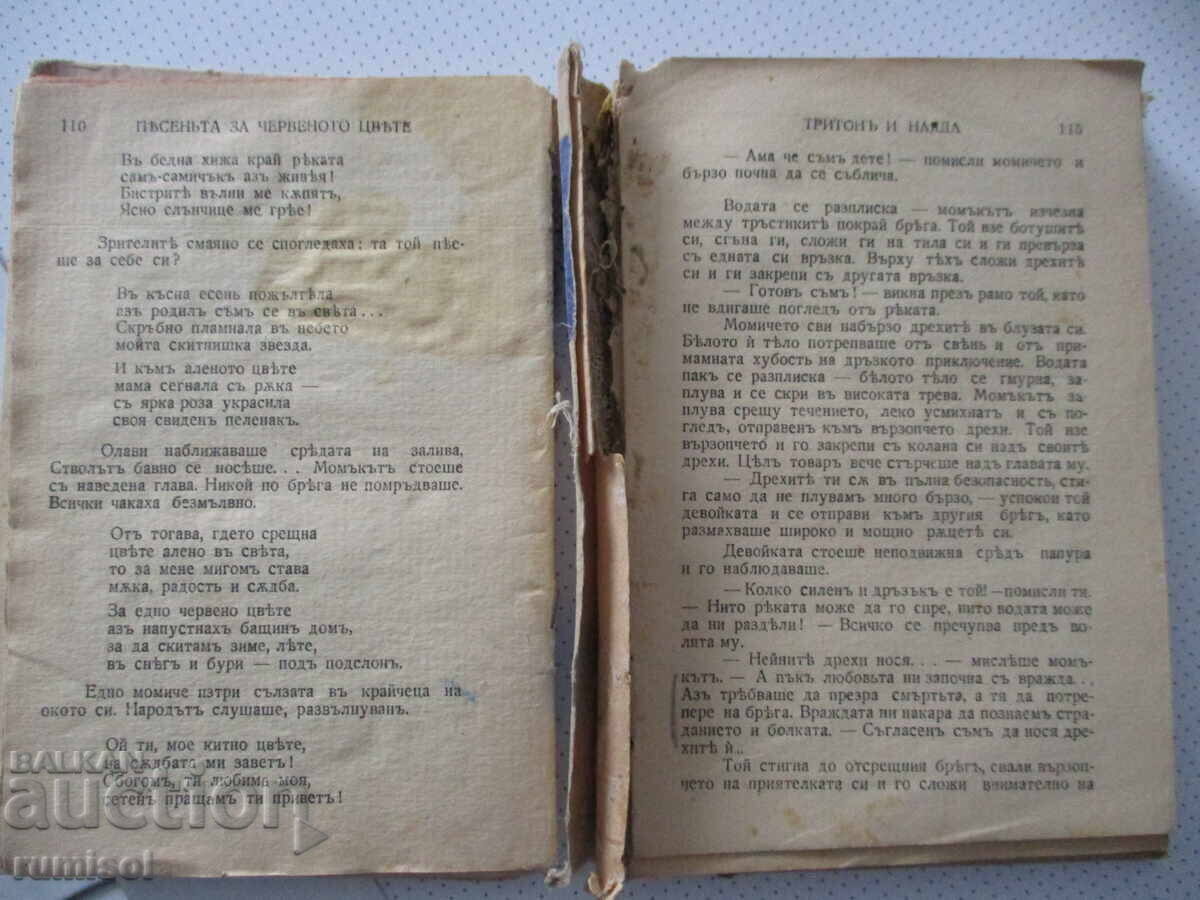 110 ПѢСЕНЬТА ЗА ЧЕРВЕНОТО ЦВѢТЕ
Въ бедна хижа край рѣката
самъ-самичъкъ азъ живѣя!
Бистритѣ вълни ме кѫпятъ,
Ясно слънчице ме грѣе!
Зрителитѣ смаяно се спогледаха: та той пѣе-
ше за себе си?
Въ късна есень пожълтѣла
азъ родилъ съмъ се въ свѣта...
Скръбно пламнала въ небето
мойта скитнишка звезда.
И къмъ аленото цвѣте
мама сегнала съ рѫка —
съ ярка роза украсила
своя свиденъ пеленакъ.
Олави наближаваше срѣдата на залива.
Стволътъ бавно се носѣше... Момъкътъ стоеше
съ наведена глава. Никой по брѣга не помръдваше.
Всички чакаха безмълвно.
Отъ тогава, гдето срещна
цвѣте алено въ свѣта,
то за мене мигомъ става
мѫка, радость и сѫдба.
За едно червено цвѣте
азъ напустнахъ бащинъ домъ,
за да скитамъ зиме, лѣте,
въ снѣгъ и бури — подъ подслонъ.
Едно момиче изтри сълзата въ крайчеца на
окото си. Народътъ слушаше, развълнуванъ.
Ой ти, мое китно цвѣте,
на сѫдбата ми заветъ!
Сбогомъ, ти любима моя,
сетенъ пращамъ ти приветъ!
ТРИТОНЪ И НАЯДА 115
— Ама че съмъ дете! — помисли момичето и
бързо почна да се съблича.
Водата се разплиска — момъкътъ изчезна
между тръстикитѣ покрай брѣга. Той взе ботушитѣ
си, сгъна ги, сложи ги на тила си и ги превърза
съ едната си връзка. Върху тѣхъ сложи дрехитѣ
си и ги закрепи съ другата връзка.
— Готовъ съмъ! — викна презъ рамо той, като
не вдигаше погледъ отъ рѣката.
Момичето сви набързо дрехитѣ въ блузата си.
Бѣлото ѝ тѣло потрепваше отъ свѣнь и отъ при-
мамната хубость на дръзкото приключение. Водата
пакъ се разплиска — бѣлото тѣло се гмурна, за-
плува и се скри въ високата трева. Момъкътъ за-
плува срещу течението, леко усмихнатъ и съ по-
гледъ, отправенъ къмъ вързопчето дрехи. Той взе
вързопчето и го закрепи съ колана си надъ своитѣ
дрехи. Цѣлъ товаръ вече стърчеше надъ главата му.
— Дрехитѣ ти сѫ въ пълна безопасность, сти-
га само да не плувамъ много бързо, — успокои той
девойката и се отправи къмъ другия брѣгъ, като
размахваше широко и мощно рѫцетѣ си.
Девойката стоеше неподвижна срѣдъ папура
и го наблюдаваше.
— Колко силенъ и дръзъкъ е той! — помисли тя.
— Нито рѣката може да го спре, нито водата може
да ни раздѣли! — Всичко се пречупва предъ во-
лята му.
— Нейнитѣ дрехи нося... — мислѣше момъ-
кътъ. — А пъкъ любовьта ни започна съ вражда...
Азъ трѣбваше да презра смъртьта, а тя да потре-
пере на брѣга. Враждата ни накара да познаемъ стра-
данието и болката. — Съгласенъ съмъ да нося дре-
хитѣ ѝ..
Той стигна до отсрещния брѣгъ, свали вързоп-
чето на приятелката си и го сложи внимателно на
BALKAN
auction
rumisol